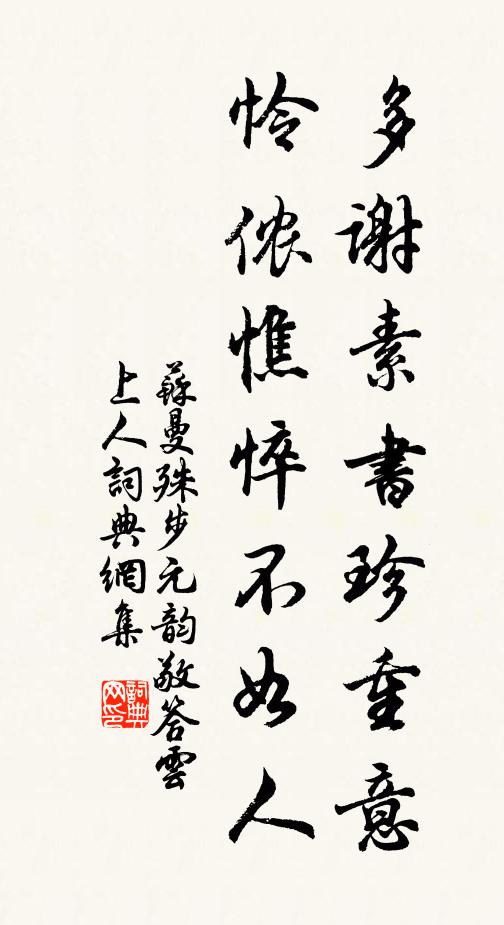 多謝素書珍重意
憐侬憔悴不如人
蘇曼殊步元韵敬答雲
上人詞典網集
詞典
网印